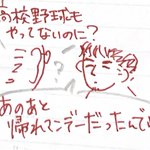 高校野球も
やってないのに？
あのあと
帰れてンデーだったんで